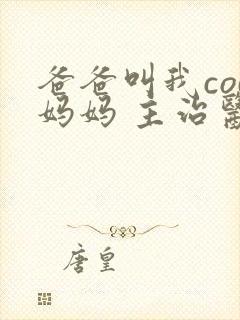 爸爸叫我co
妈妈 主治
唐皇